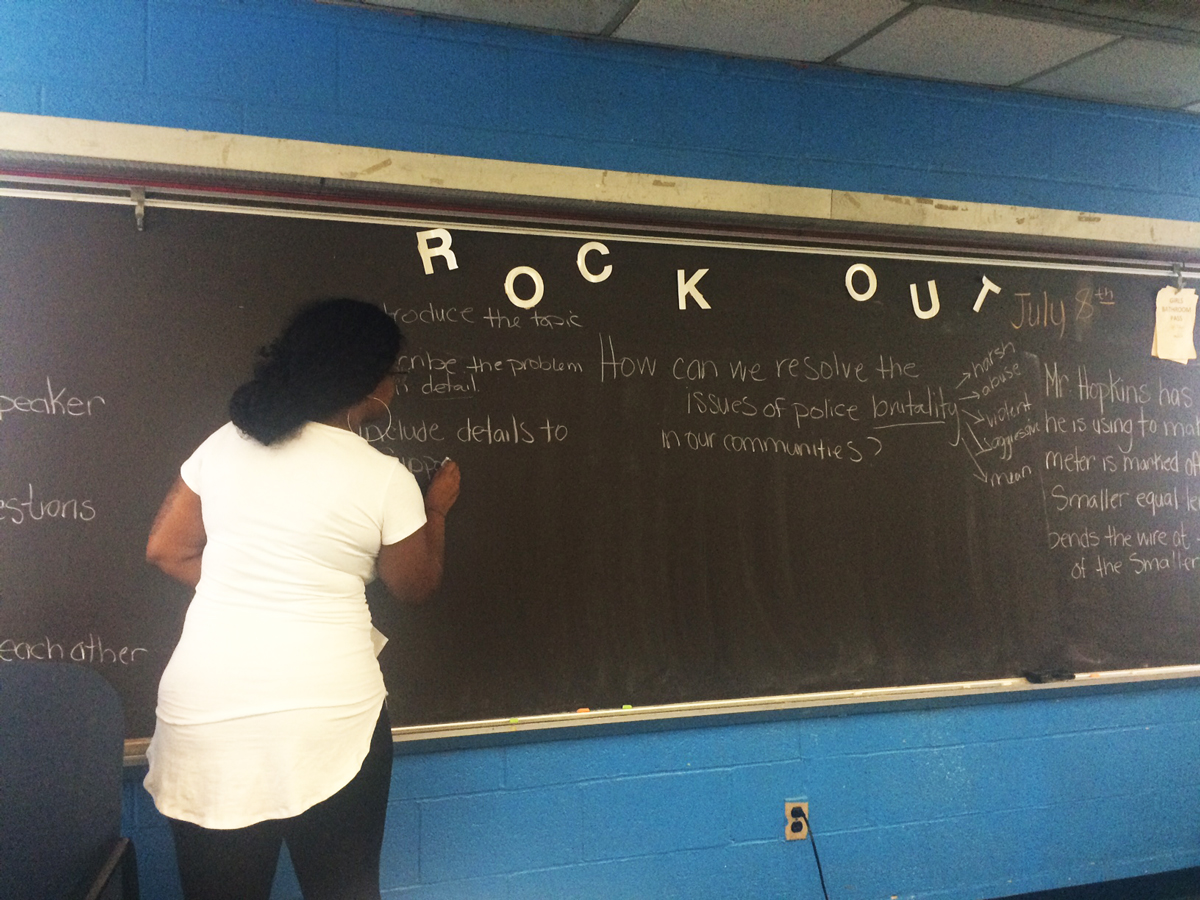 ROCK OUT
July 8th
troduce the topic
cribe the problem
detail
include details to
suppo
How can we resolve the
issues of police brutality
in our communities?
harsh
abuse
violent
aggressive
mean
peaker
estions
each other
Mr Hopkins has
he is using to mak
meter is marked off
Smaller equal le
bends the wire at
of the Smaller